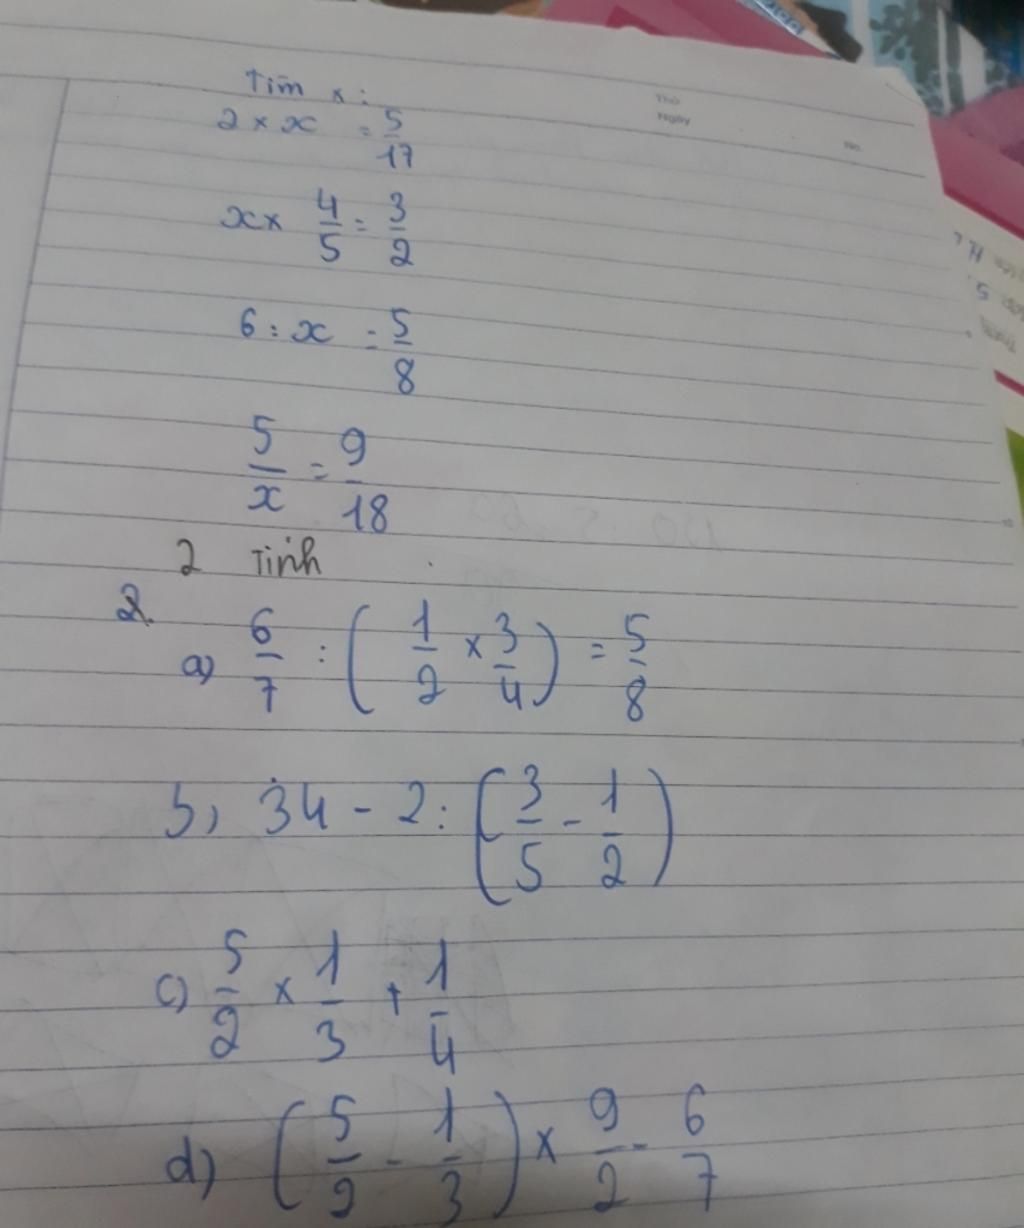 Tìm x:
2 × x = 5/17
x × 4/5 = 3/2
6 : x = 5/8
5/x = 9/18
2 Tính
2.
a) 6/7 : ( 1/2 × 3/4 ) = 5/8
b, 34 - 2 : ( 3/5 - 1/2 )
c) 5/2 × 1/3 + 1/4
d) ( 5/2 - 1/3 ) × 9/2 - 6/7
Thứ
Ngày
No.